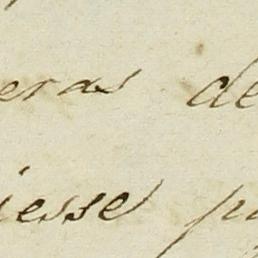 eras de
iesse pa